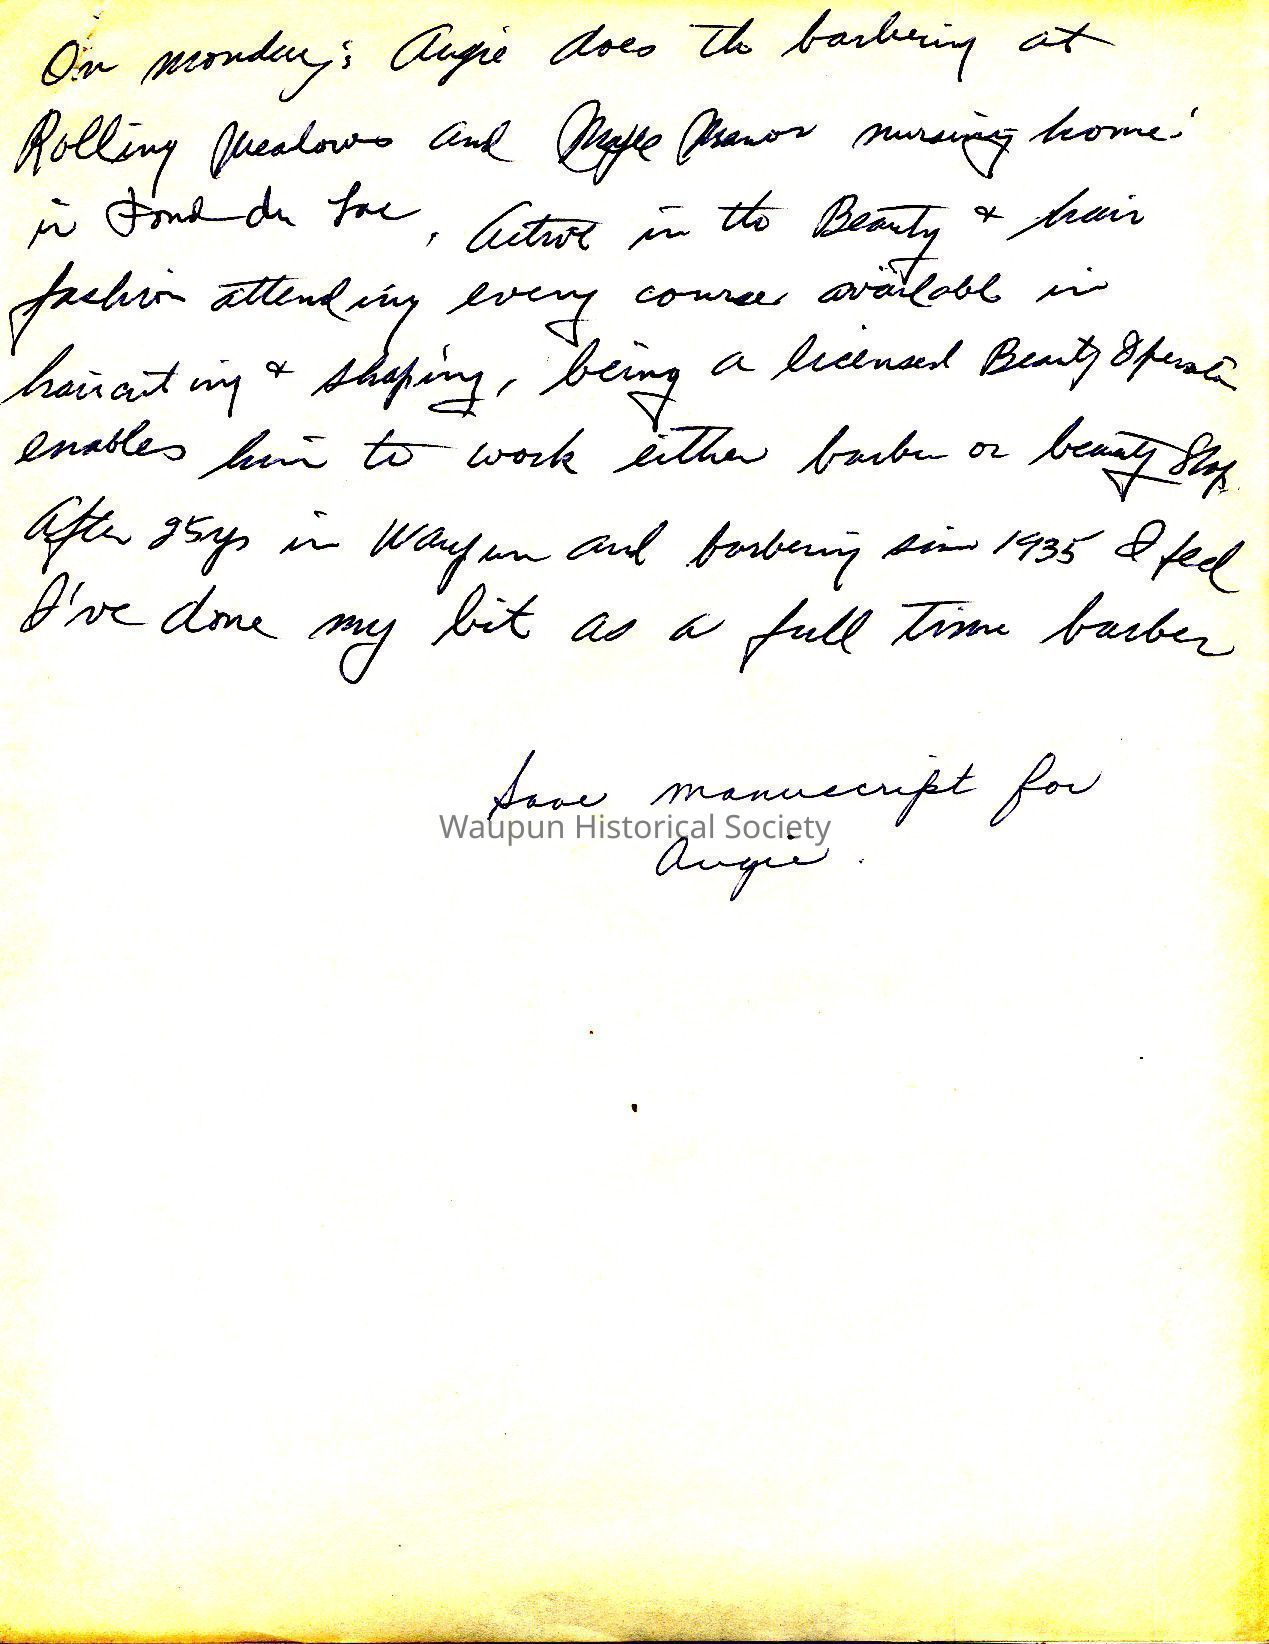 On monday's Augie does the barbering at
Rolling Meadows and Maple Manor nursing home's
in Fond du Lac, Active in the Beauty & hair
fashion attending every course available in
haircutting & shaping, being a licensed Beauty Operator
enables him to work either barber or beauty Shop.
After 25 yrs in Waupun and barbering since 1935 I feel
I've done my bit as a full time barber
Save manuscript for
Waupun Historical Society
Augie.